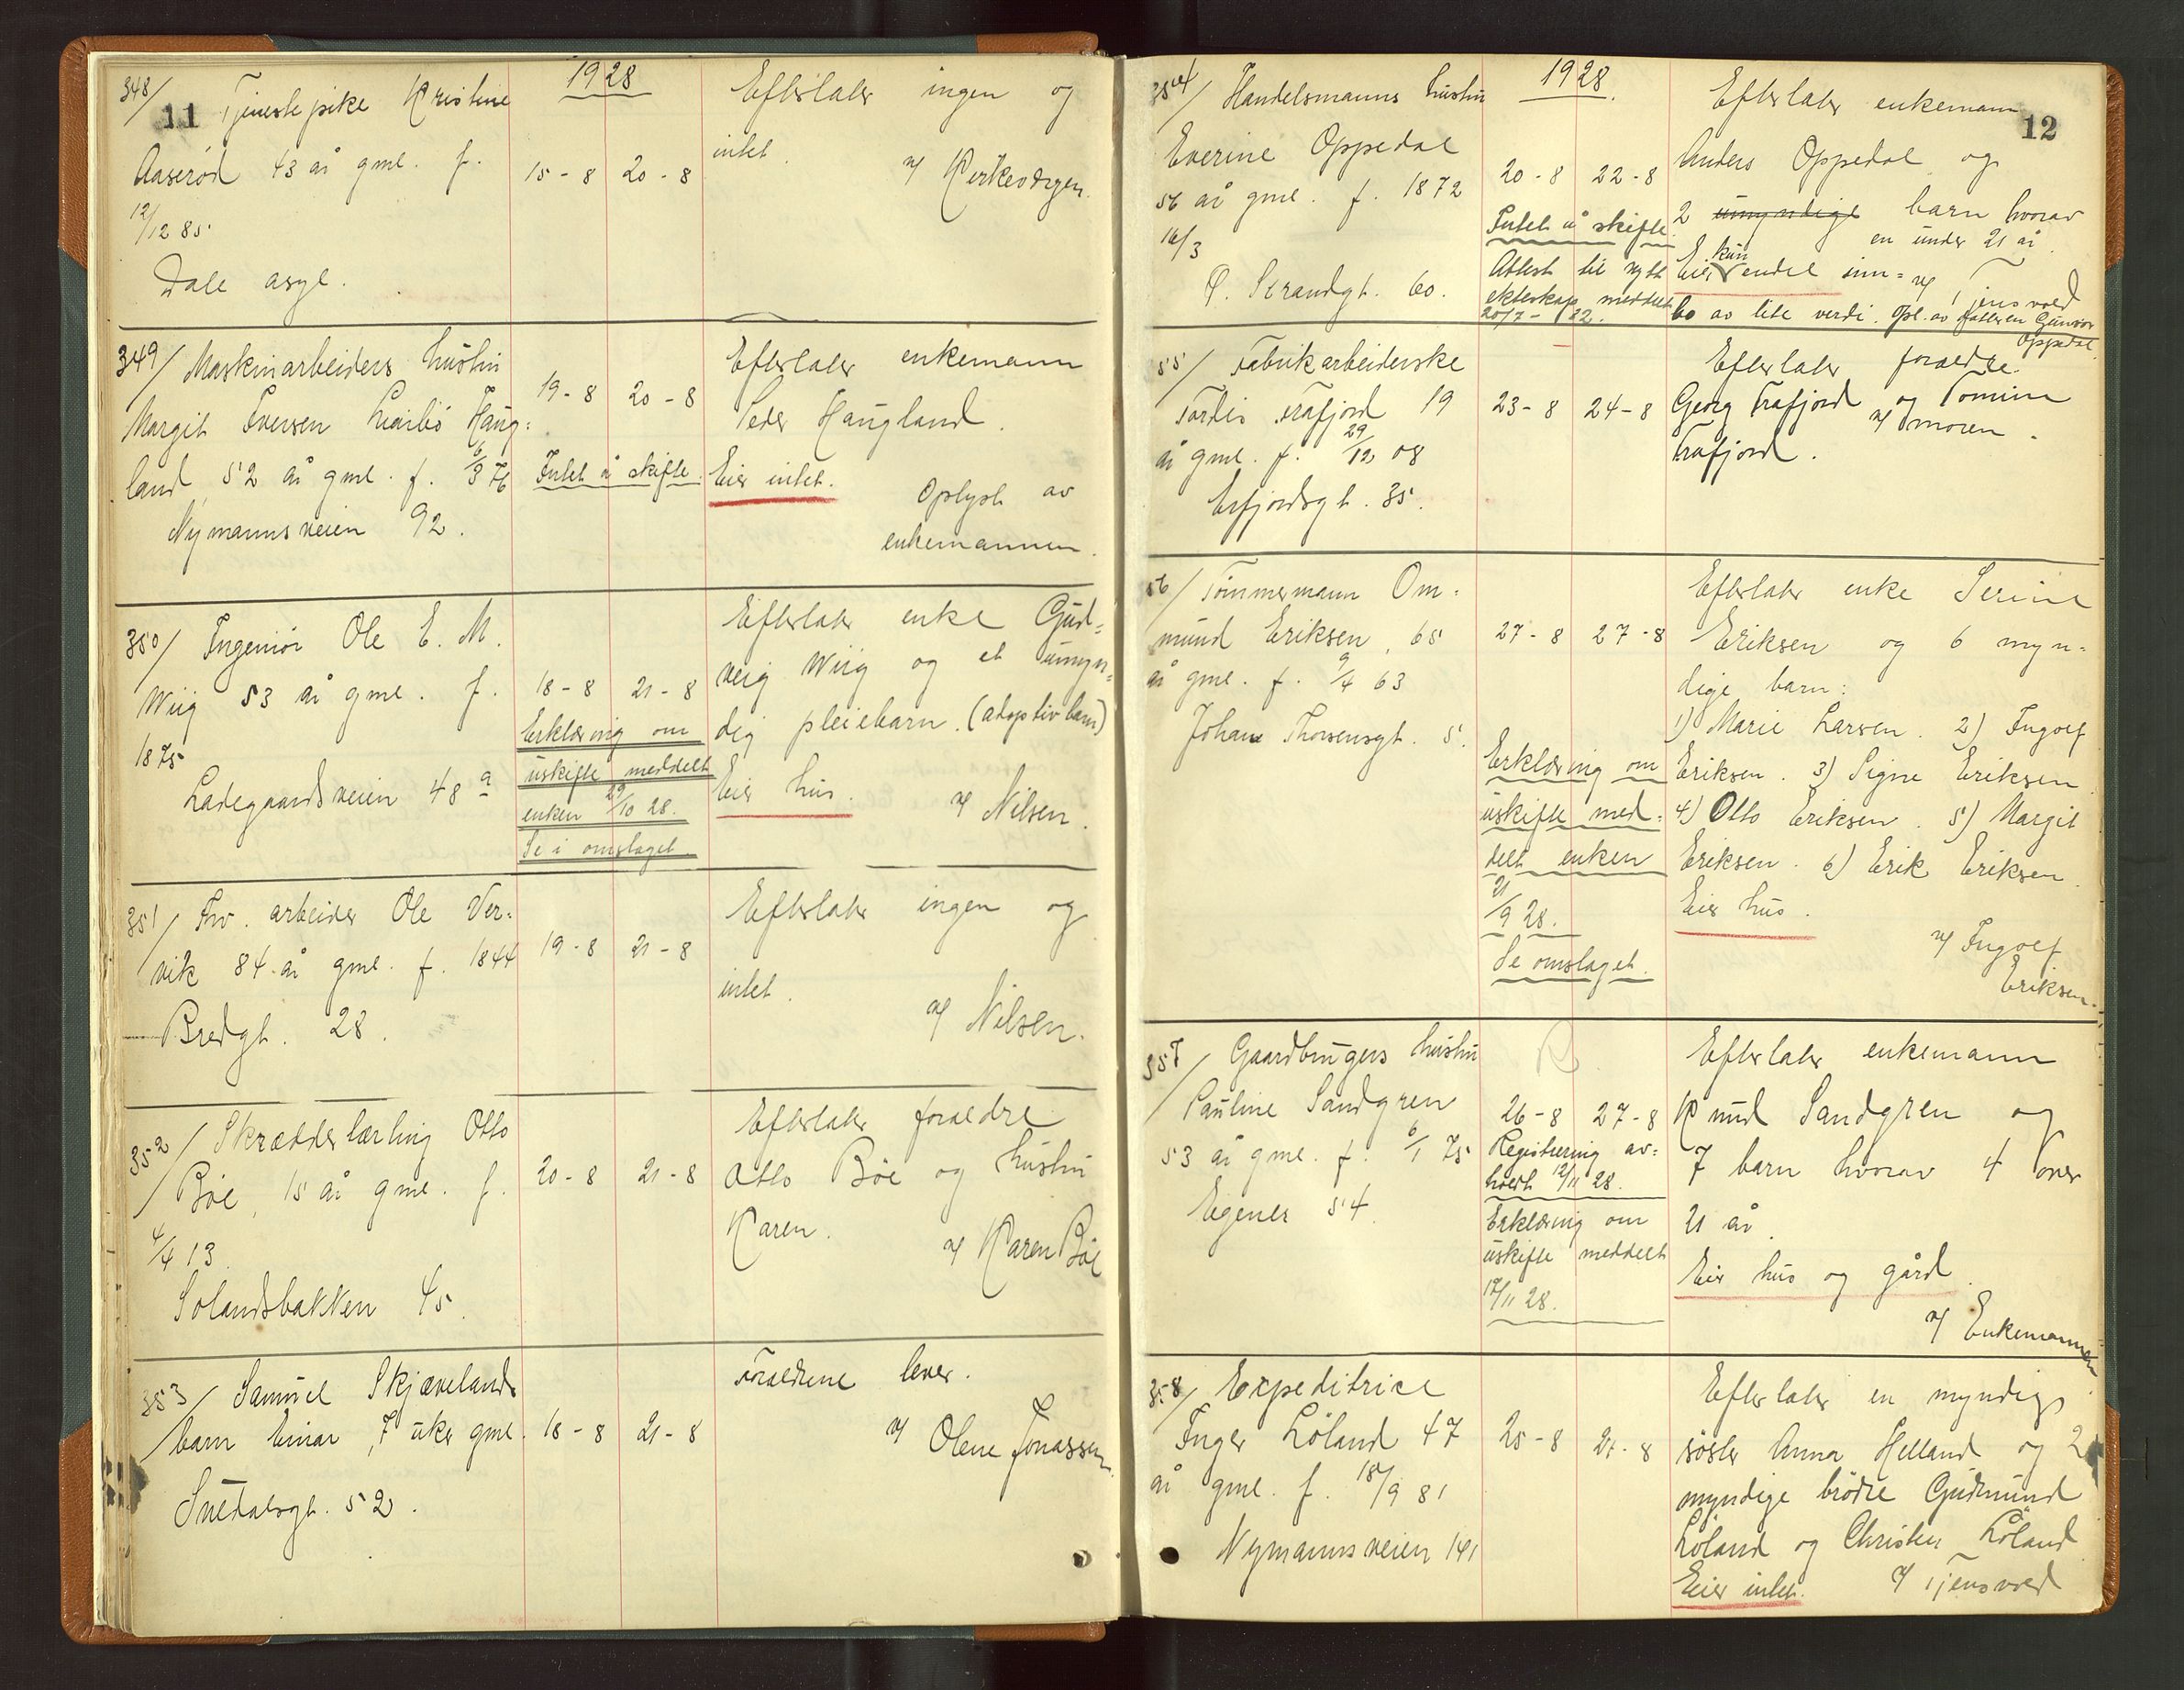 11
1928
348/ Tjenestepike Kristine
Aaserød 43 år gml. f.
12/12 85
Dale asyl.
15-8 20-8
Efterlater ingen og
intet.
v/ Kirkevergen.
349/ Maskinarbeiders hustru
Margit Iversen Haug=
land, 52 år gml. f. 6/3 76
Nymannsveien 92.
19-8 20-8
Intet å skifte.
Efterlater enkemann
Peder Haugland.
Eier intet.
Oplyst av
enkemannen.
350/ Ingeniør Ole E. M.
Wiig 53 år gml. f.
1875
Ladegaardsveien 48 a
18-8 21-8
Erklæring om
uskifte meddelt
enken 29/10 28.
Se i omslaget.
Efterlater enke Gud=
veig Wiig og et umyn=
dig pleiebarn. (adoptivbarn)
Eier hus.
v/ Nilsen.
351/ Fhv. arbeider Ole Ver=
vik 84 år gml. f. 1844
Bredgt. 28.
19-8 21-8
Efterlater ingen og
intet.
v/ Nilsen.
352/ Skrædderlærling Otto
Bøe, 15 år gml. f.
4/4 13.
Solandsbakken 45.
20-8 21-8
Efterlater forældre
Otto Bøe og hustru
Karen.
v/ Karen Bøe
353/ Samuel Skjævelands
barn Einar, 7 uker gml.
Suldalsgt. 52.
18-8 21-8
Forældrene lever.
v/ Olene Jonassen.
12
1928.
354/ Handelsmanns hustru
Everine Oppedal
56 år gml. f. 1872
16/3
Ø. Strandgt. 60.
20-8 22-8
Intet å skifte.
Attest til nytt
ekteskap meddelt
20/7-32.
Efterlater enkemann
Anders Oppedal og
2 umyndige barn hvorav
en under 21 år.
Eier kun endel inn=
v/ Tjensvold
bo av lite verdi. Opl. av datteren Gunvor
Oppedal.
55/ Fabrikarbeiderske
Tordis Frafjord 19
år gml. f. 29/12 08
Erfjordsgt. 35.
23-8 24-8
Efterlater foreldre
Georg Frafjord og Tomine
Frafjord.
v/ moren.
56/ Tømmermann Om=
mund Eriksen, 65
år gml. f. 9/4 63
Johan Thorsensgt. 5.
27-8 27-8
Erklæring om
uskifte med=
delt enken
21/9 28.
Se omslaget.
Efterlater enke Serine
Eriksen og 6 myn=
dige barn:
1) Marie Larsen. 2) Ingolf
Eriksen. 3) Signe Eriksen.
4) Otto Eriksen. 5) Margit
Eriksen. 6) Erik Eriksen.
Eier hus.
v/ Ingolf
Eriksen.
357/ Gaardbrugers hustru
Pauline Sandgren
53 år gml. f. 6/1 75
Egenes 54.
26-8 27-8
Registrering av=
holdt 12/11 28.
Erklæring om
uskifte meddelt
17/11 28.
Efterlater enkemann
Knud Sandgren og
7 barn hvorav 4 over
21 år.
Eier hus og gård.
v/ Enkemannen
358/ Expeditrice
Inger Løland 47
år gml. f. 18/9 81
Nymannsveien 141
25-8 27-8
Efterlater en myndig
søster Anna Helland og 2
myndige brødre Gudmund
Løland og Christen Løland
Eier intet.
v/ Tjensvold